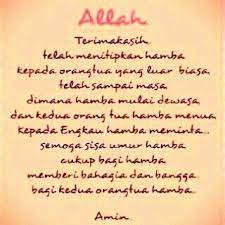 Allah
Terimakasih
telah menitipkan hamba
kepada orangtua yang luar biasa,
telah sampai masa
dimana hamba mulai dewasa
dan kedua orang tua hamba menua
kepada Engkau hamba meminta..
semoga sisa umur hamba
cukup bagi hamba
memberi bahagia dan bangga
bagi kedua orangtua hamba.
Amin.